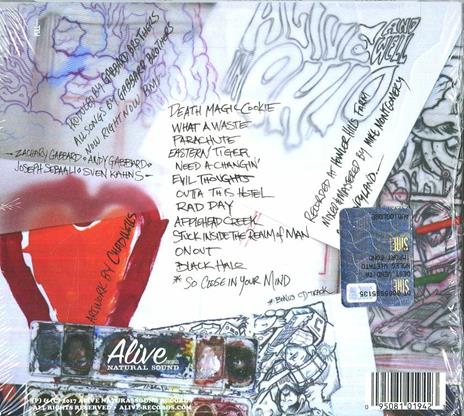 ALIVE AND
WELL
IN
OHIO
PRODUCED BY GABBARD BROTHERS
ALL SONGS BY GABBARD BROTHERS
NOW RIGHT NOW BMI
- ZACHARY GABBARD • ANDY GABBARD •
JOSEPH SEBAALI • SVEN KAHNS -
DEATH MAGIC COOKIE
WHAT A WASTE
PARACHUTE
EASTERN TIGER
NEED A CHANGIN'
EVIL THOUGHTS
OUTTA THIS HOTEL
RAD DAY
APPLEHEAD CREEK
STUCK INSIDE THE REALM OF MAN
ON OUT
BLACK HOLE
* SO CLOSE IN YOUR MIND
* BONUS CD TRACK
RECORDED AT HOWLER HILLS FARM
MIXED & MASTERED BY MIKE MONTGOMERY
ARTWORK BY
SIAE
Alive
NATURAL SOUND
(P) & (C) 2017 ALIVE NATURALSOUND RECORDS
ALL RIGHTS RESERVED • ALIVE-RECORDS.COM
0 95081 01942